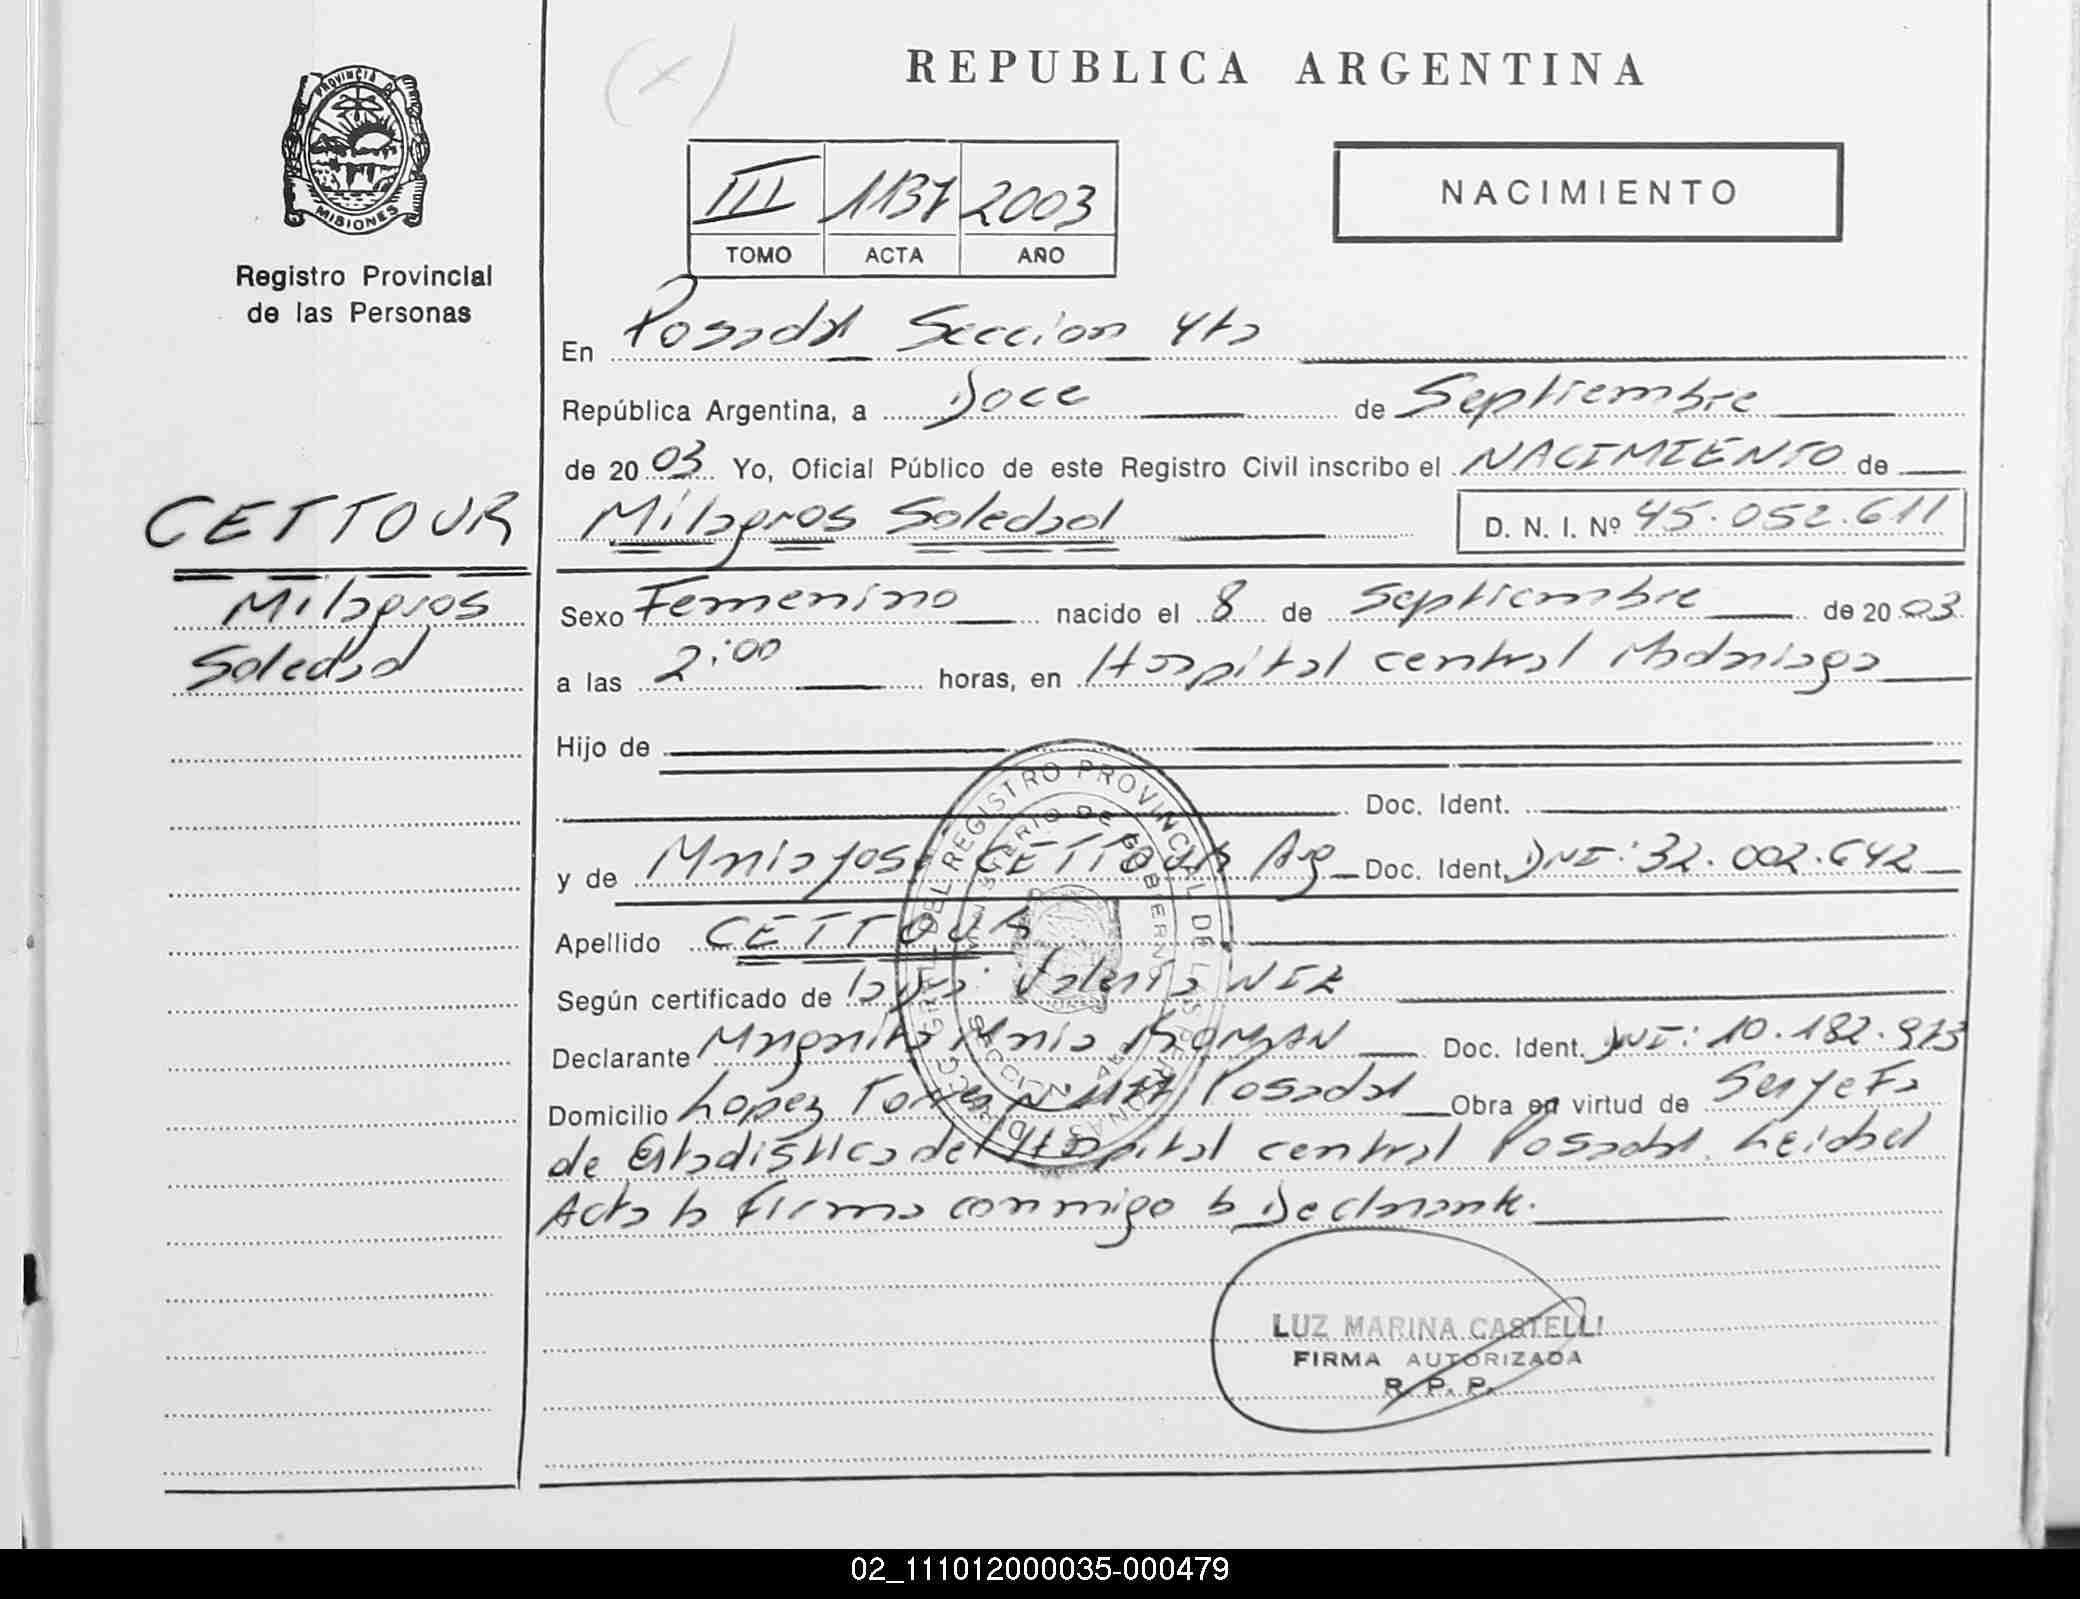 REPUBLICA ARGENTINA
PROVINCIA DE MISIONES
Registro Provincial
de las Personas
III 1137 2003
TOMO ACTA AÑO
NACIMIENTO
En Posadas Seccion 4ta
República Argentina, a Doce de Septiembre
de 2003 Yo, Oficial Público de este Registro Civil inscribo el NACIMIENTO de
CETTOUR
Milagros Soledad D. N. I. Nº 45.052.611
Milagros
Soledad
Sexo Femenino nacido el 8 de Septiembre de 2003
a las 2:00 horas, en Hospital central Madariaga
Hijo de
Doc. Ident.
y de Maria Jose CETTOUR Arg Doc. Ident. DNI: 32.002.642
Apellido CETTOUR
Según certificado de Valeria NIZ
Declarante Margarita Maria ROMAN Doc. Ident. DNI: 10.182.973
Domicilio Lopez Torres Posadas Obra en virtud de Ser Jefa
de Estadistica del Hospital central Posadas. Leida el
Acta la Firma conmigo la Declarante.
LUZ MARINA CASTELLI
FIRMA AUTORIZADA
R. P. P.
02_111012000035-000479